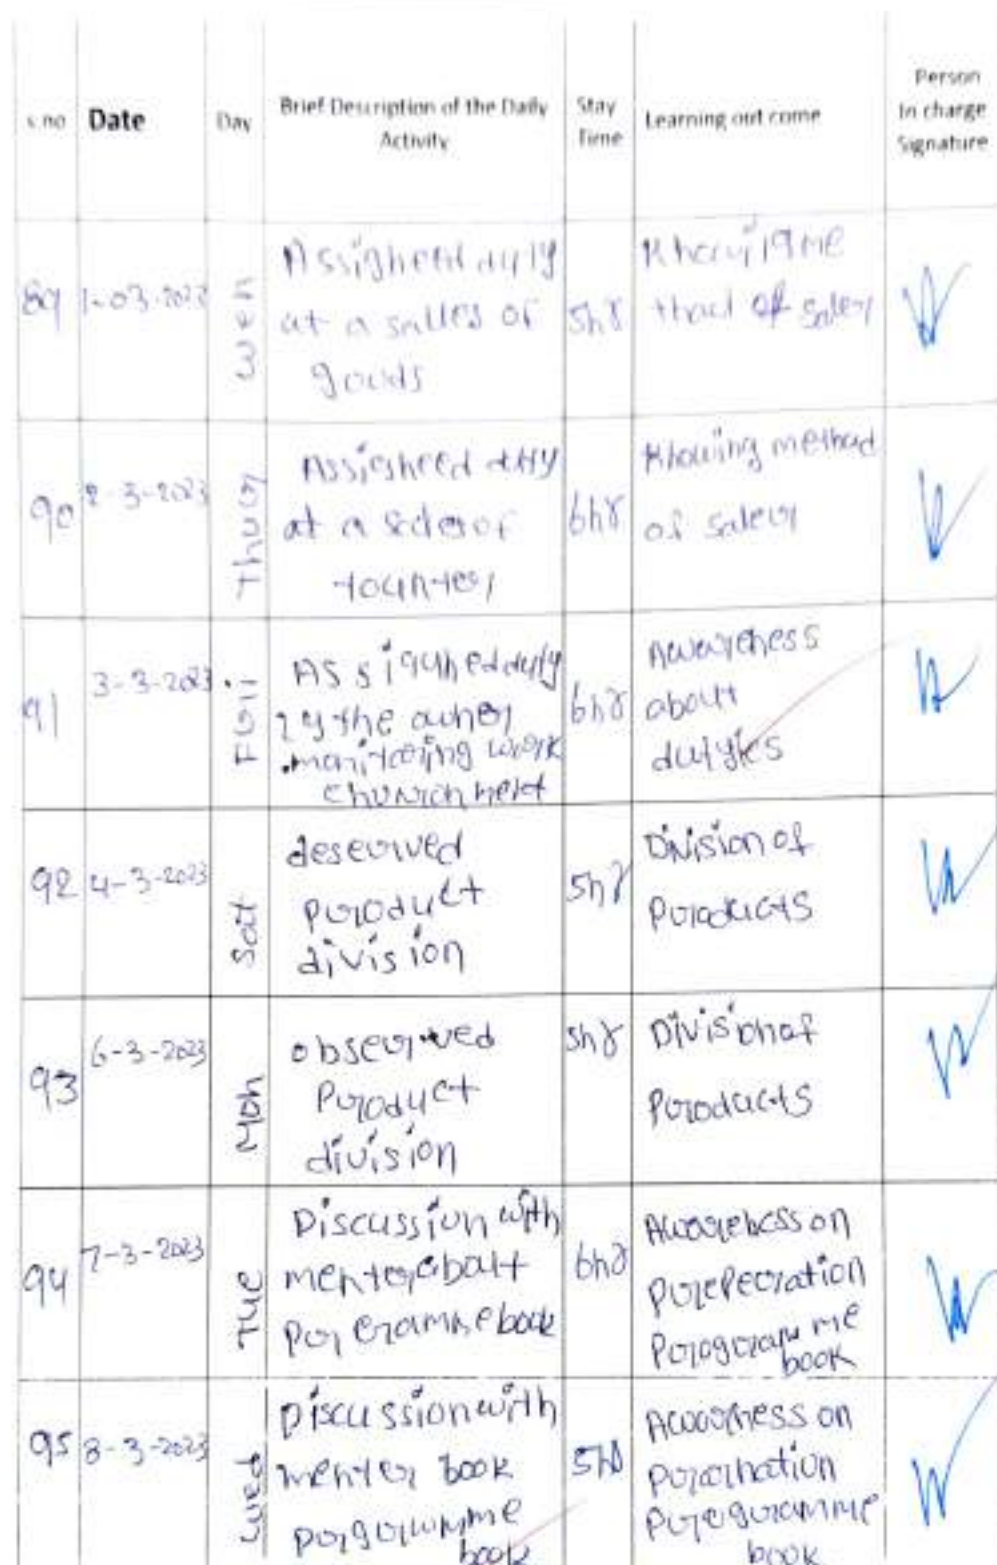 s.no Date Day Brief Description of the Daily Activity Stay Time Learning out come Person In charge Signature
89 1-03-2023 Wen
Assigned duty
at a salles of
goods
5hr
that of sales
90 2-3-2023 Thur
Assigneed duty
at a
6hr
Knowing method
of sales
91 3-3-2023 Fri
Assigned duty
by the owner
monitering work
6hr
Awareness
about
duties
92 4-3-2023 Sat
deserved
product
division
5hr
Division of
Products
93 6-3-2023 Mon
observed
Product
division
5hr
Division of
Products
94 7-3-2023 Tue
Discussion with
menter about
book
6hr
Awareness on
Programme
book
95 8-3-2023 Wed
Discussion with
menter book
programme
book
5hr
Awareness on
programme
book